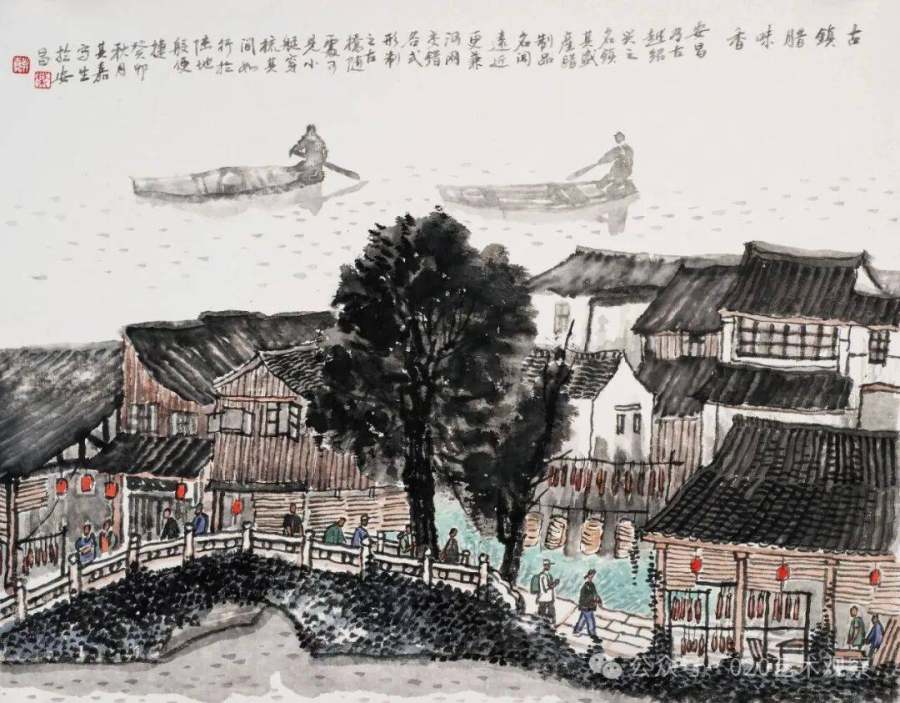 古鎮腊味香
安昌
為古
越绍
兴之
名镇
其盛
產腊
制品
名闻
遠近
更兼
河网
交错
各式
形制
之古
橋随
處可
見小
艇穿
梳其
间如
行於
陆地
般便
捷
癸卯
秋月
其嘉
写生
於安
昌
公众号 · 020艺术观察